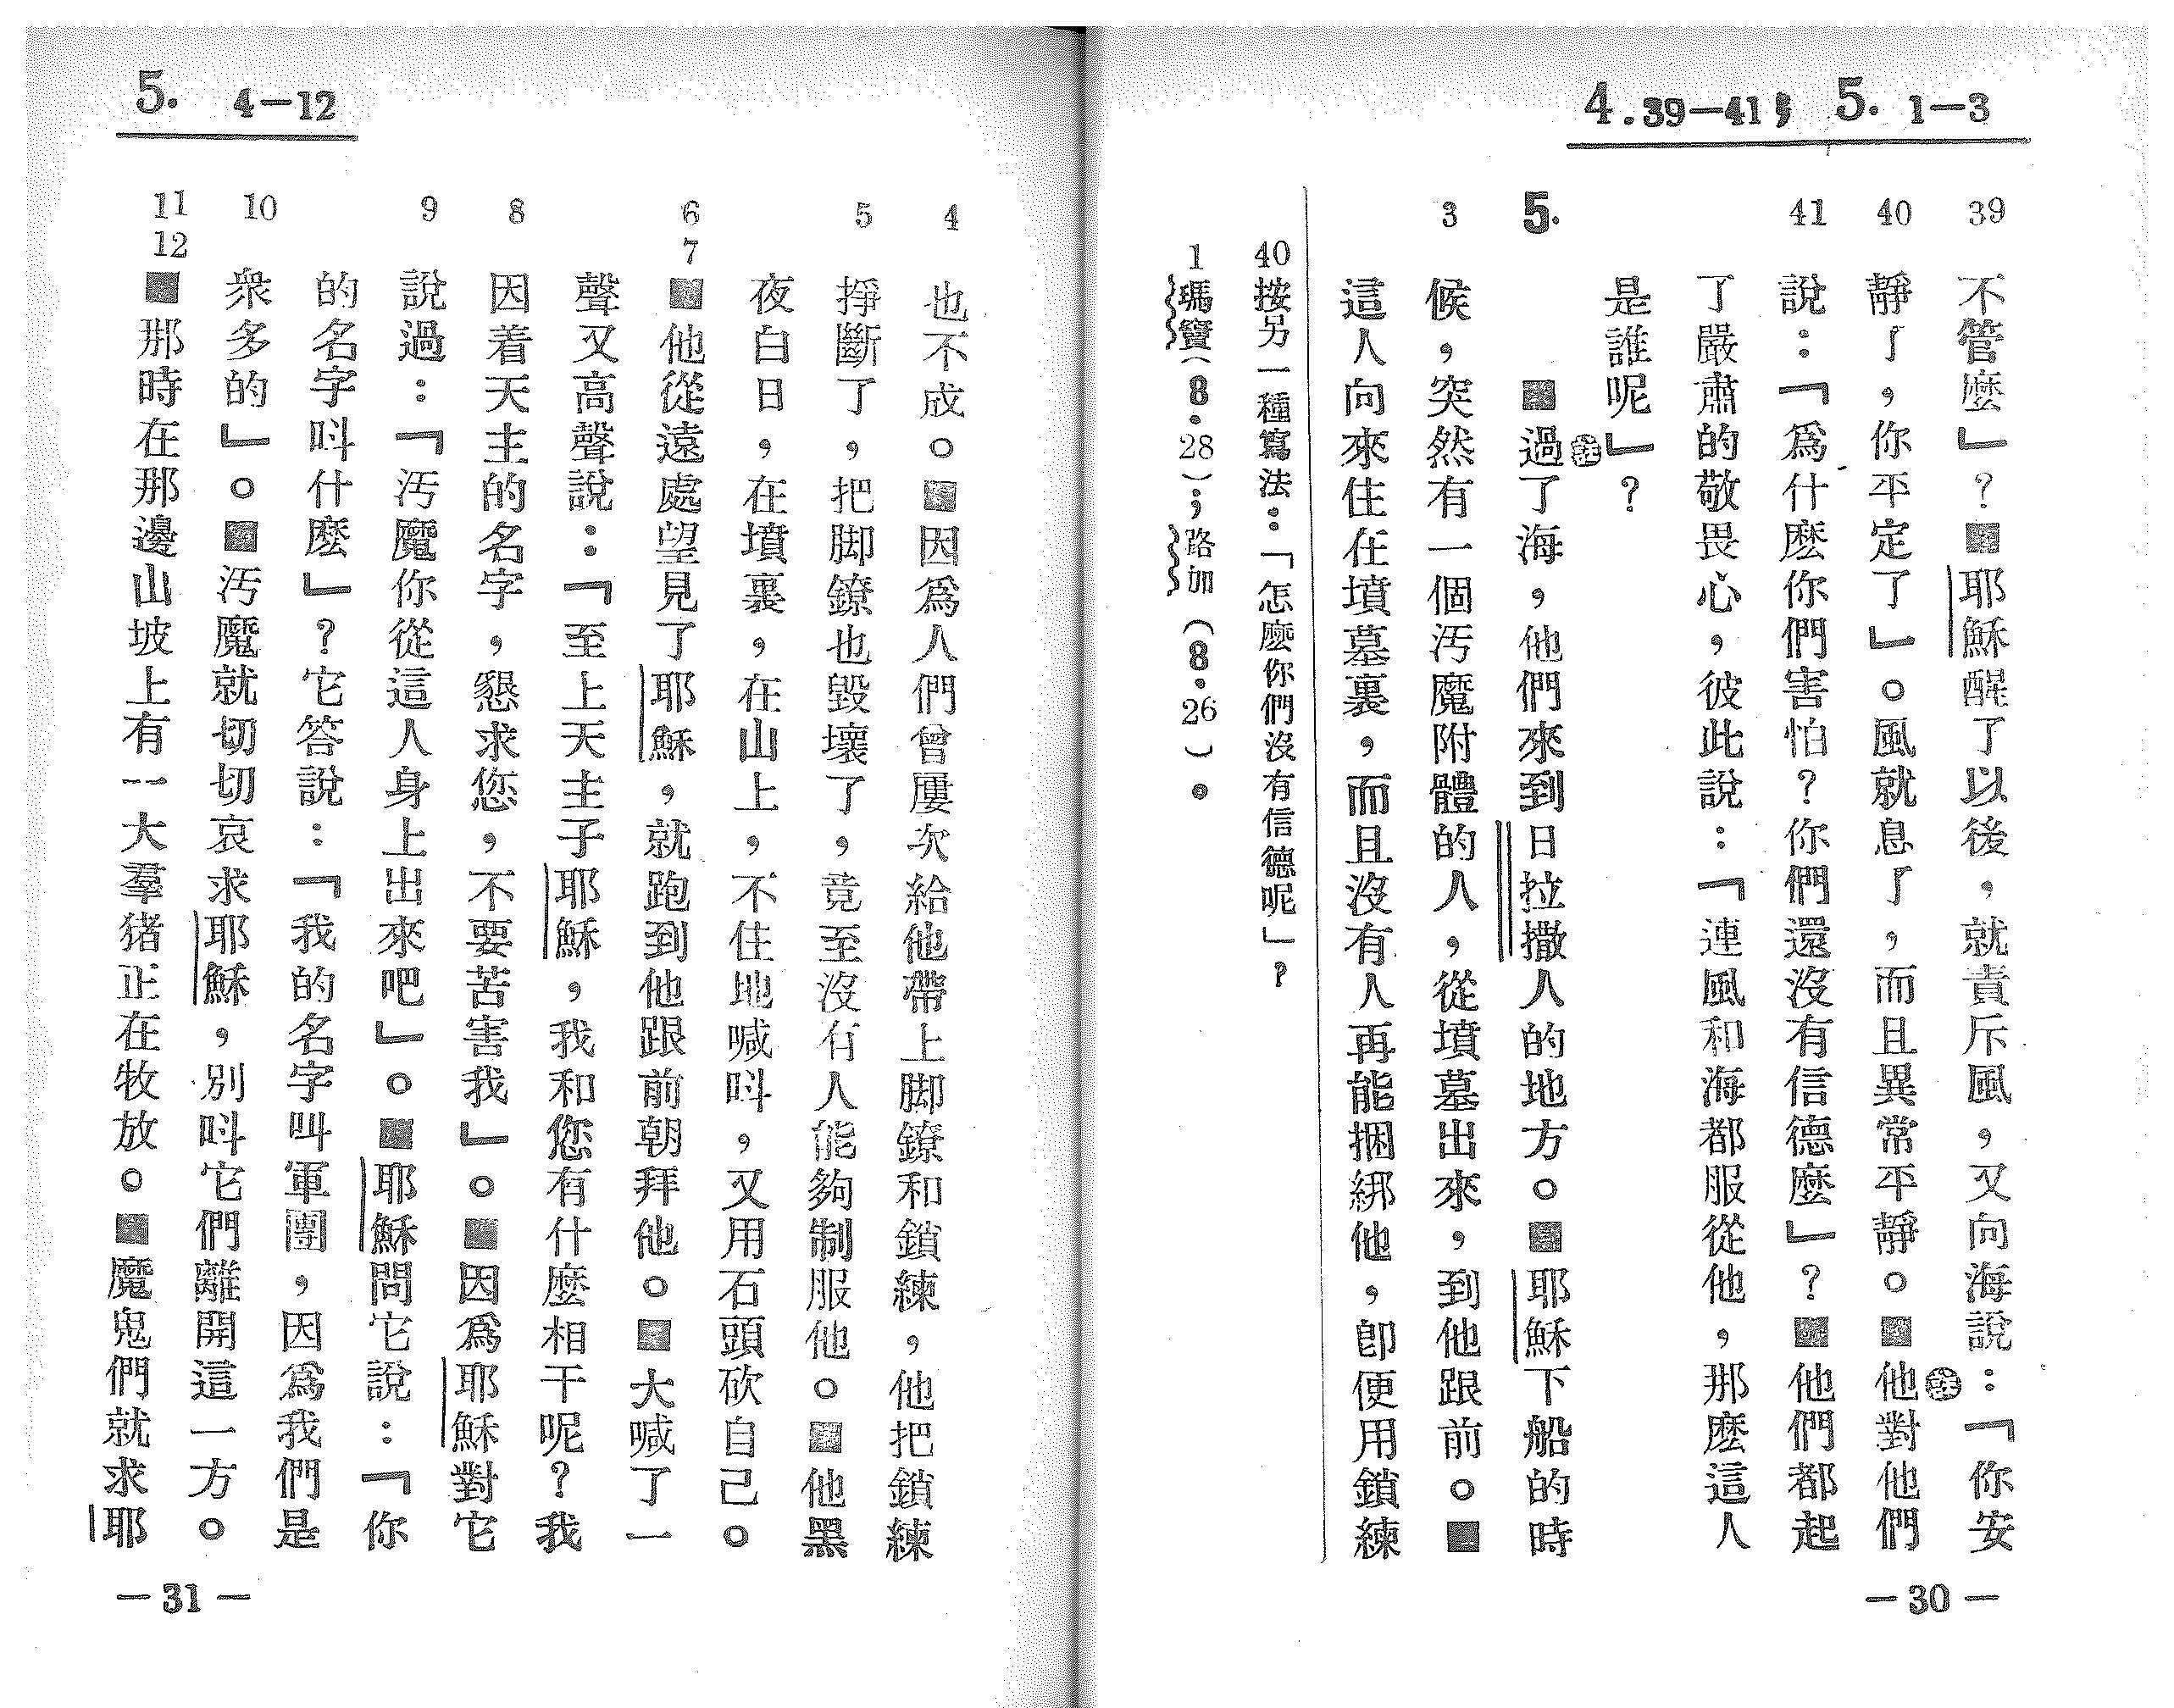 4.39—41； 5. 1—3
39
不管麽」？■耶穌醒了以後，就責斥風，又向海說：「你安
40
靜了，你平定了」。風就息了，而且異常平靜。■他㊟對他們
41
說：「爲什麽你們害怕？你們還沒有信德麽」？■他們都起
了嚴肅的敬畏心，彼此說：「連風和海都服從他，那麽這人
是誰呢」？
5.
■過㊟了海，他們來到日拉撒人的地方。■耶穌下船的時
3
候，突然有一個汚魔附體的人，從墳墓出來，到他跟前。■
這人向來住在墳墓裏，而且沒有人再能捆綁他，卽便用鎖練
40按另一種寫法：「怎麽你們沒有信德呢」？
1瑪竇（8．28）；路加（8．26）。
—30—
5. 4—12
4
也不成。■因爲人們曾屢次給他帶上脚鐐和鎖練，他把鎖練
5
掙斷了，把脚鐐也毀壞了，竟至沒有人能夠制服他。■他黑
夜白日，在墳裏，在山上，不住地喊呌，又用石頭砍自己。
6
7
■他從遠處望見了耶穌，就跑到他跟前朝拜他。■大喊了一
聲又高聲說：「至上天主子耶穌，我和您有什麽相干呢？我
8
因着天主的名字，懇求您，不要苦害我」。■因爲耶穌對它
9
說過：「汚魔你從這人身上出來吧」。■耶穌問它說：「你
的名字呌什麽」？它答說：「我的名字叫軍團，因爲我們是
10
衆多的」。■汚魔就切切哀求耶穌，別呌它們離開這一方。
11
12
■那時在那邊山坡上有一大羣猪正在牧放。■魔鬼們就求耶
—31—